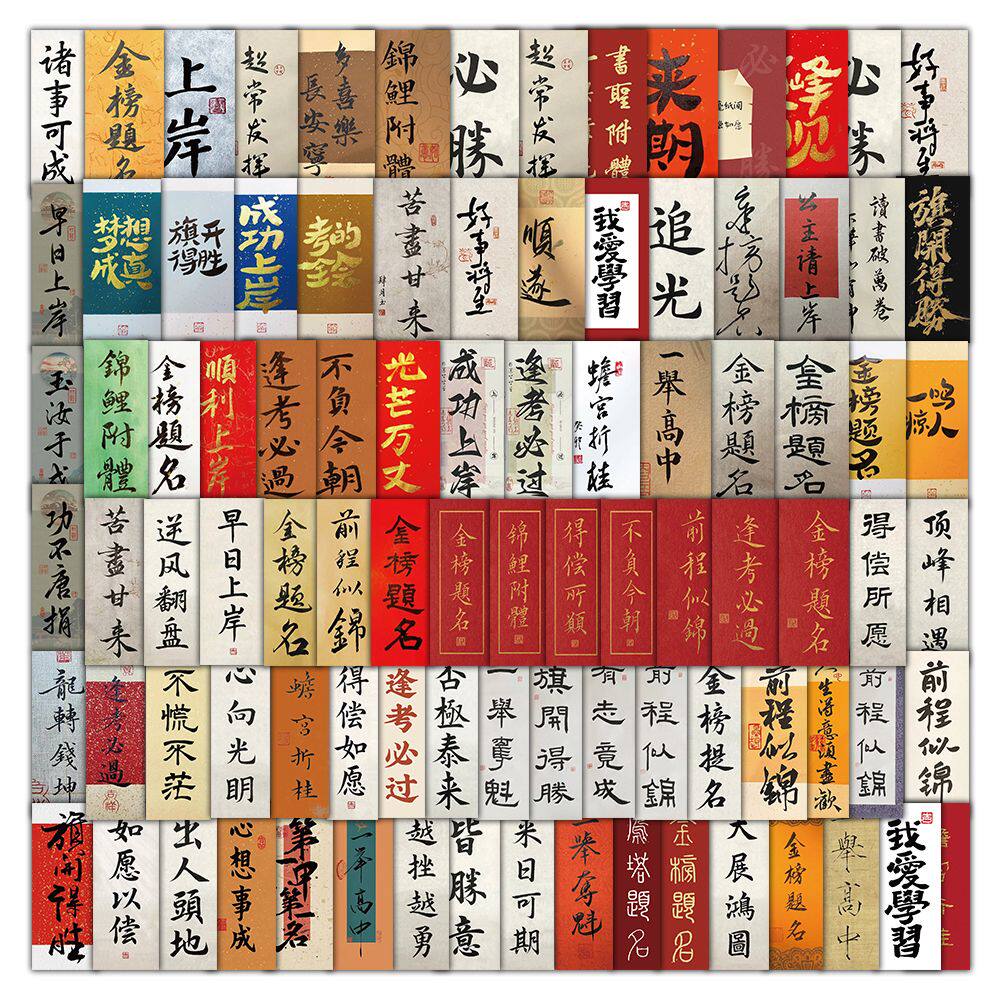 诸事可成
金榜題名
上岸
超常发挥
多喜樂
長安寧
錦鲤附體
必勝
超常发挥
書聖附體
来期
必勝
好事将至
早日上岸
梦想成真
旗开得胜
成功上岸
苦盡甘来
好事将至
順遂
我愛學習
追光
金榜题名
公主请上岸
讀書破萬卷
旗開得勝
玉汝于成
錦鲤附體
金榜题名
順利上岸
逢考必過
不負今朝
光芒万丈
成功上岸
逢考必过
蟾宫折桂
一舉高中
金榜题名
金榜题名
金榜题名
一鸣惊人
功不唐捐
苦盡甘来
逆风翻盘
早日上岸
金榜题名
前程似錦
金榜題名
金榜题名
錦鲤附體
得偿所願
不負今朝
前程似锦
逢考必過
金榜题名
得偿所愿
顶峰相遇
龍轉錢坤
逢考必過
不慌不茫
心向光明
蟾宫折桂
得偿如愿
逢考必过
否極泰来
一舉奪魁
旗開得勝
有志竟成
前程似錦
金榜提名
前程似锦
人生得意须盡歡
前程似錦
前程似锦
旗开得胜
如愿以偿
出人頭地
心想事成
第一甲第一名
一举高中
越挫越勇
皆勝意
来日可期
一舉奪魁
鴈塔題名
金榜题名
大展鴻圖
金榜题名
一舉高中
我愛學習